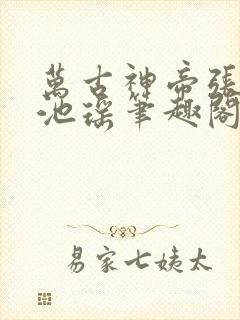 萬古神帝張
池瑤筆趣閣
易家七姨太